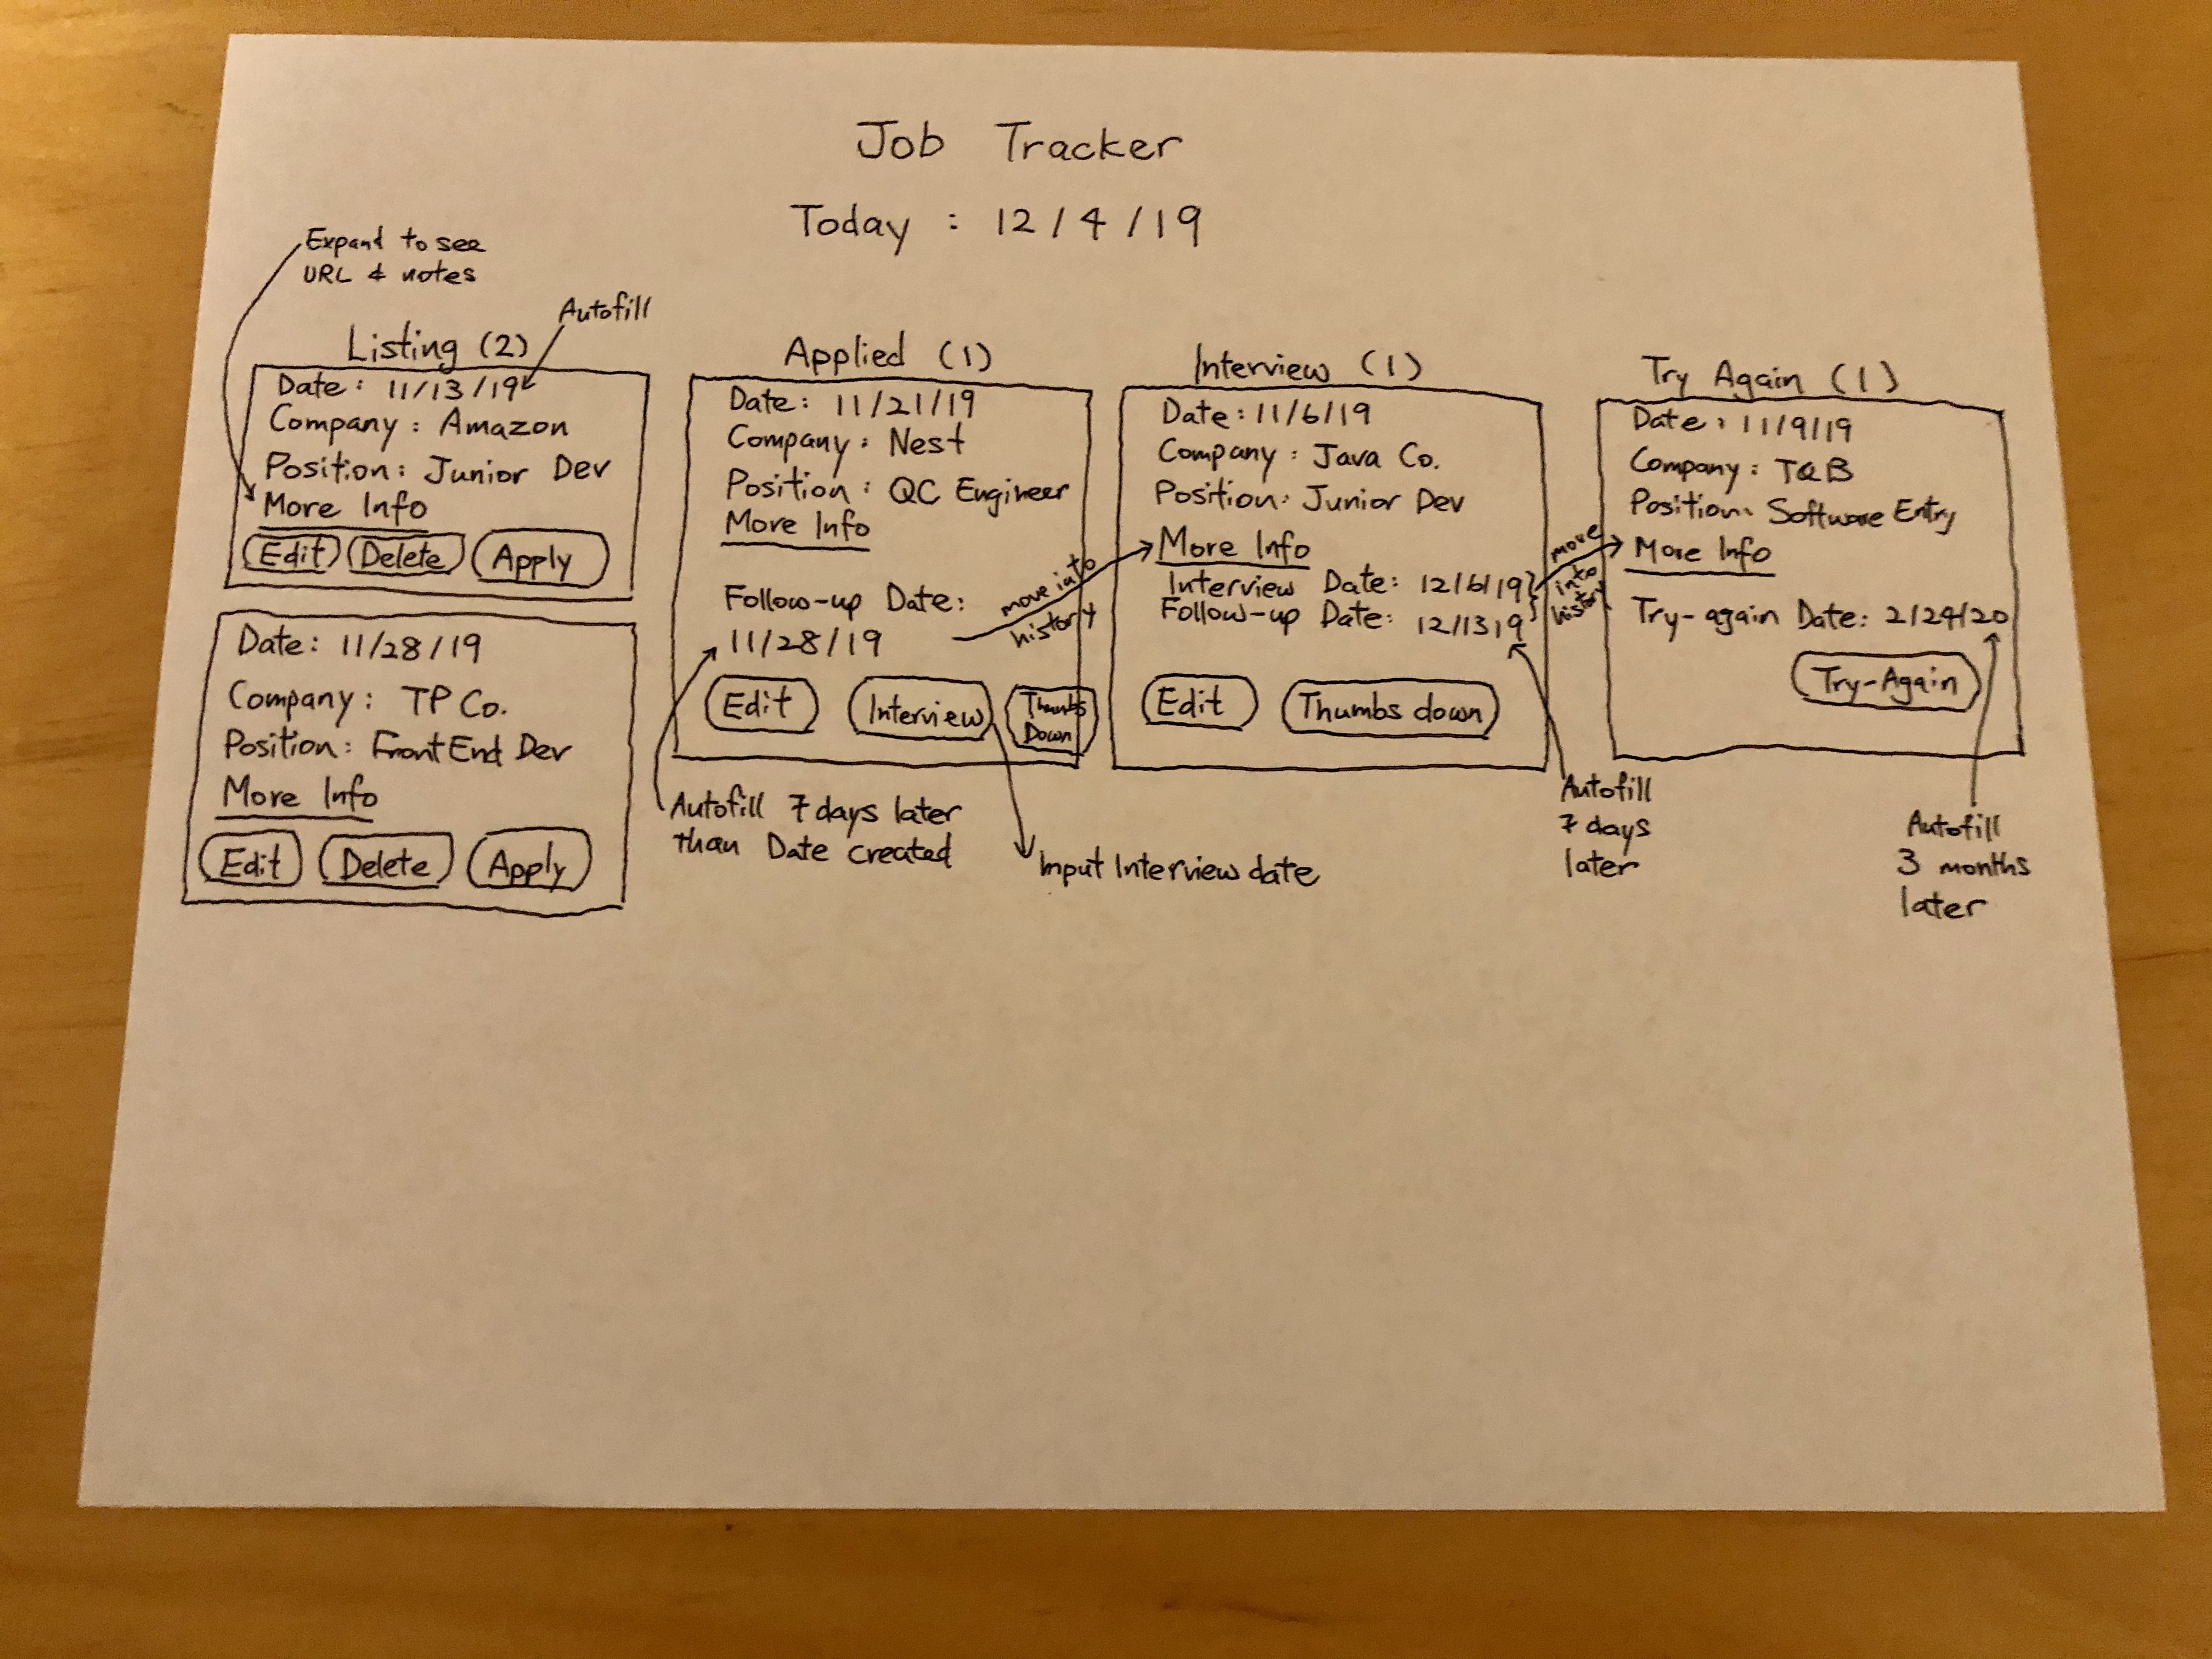 Job Tracker
Today : 12/4/19
Expand to see
URL & notes
Autofill
Listing (2)
Date: 11/13/19
Company: Amazon
Position: Junior Dev
More Info
Edit Delete Apply
Date: 11/28/19
Company: TP Co.
Position: Front End Dev
More Info
Edit Delete Apply
Applied (1)
Date: 11/21/19
Company: Nest
Position: QC Engineer
More Info
Follow-up Date:
11/28/19
move into
history
Edit Interview Thumbs
Down
Autofill 7 days later
than Date created
Input Interview date
Interview (1)
Date: 11/6/19
Company: Java Co.
Position: Junior Dev
More Info
Interview Date: 12/6/19
Follow-up Date: 12/13 19
move
into
history
Edit Thumbs down
Autofill
7 days
later
Try Again (1)
Date: 11/9/19
Company: TQB
Position: Software Entry
More Info
Try-again Date: 2/24/20
Try-Again
Autofill
3 months
later